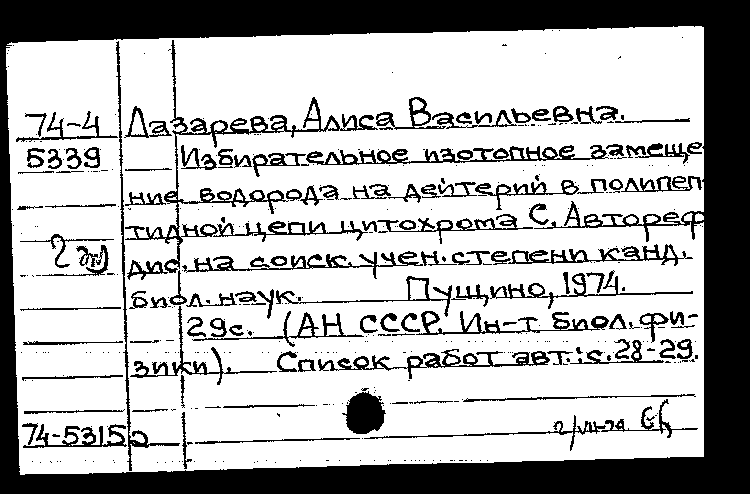 74-4 Лазарева, Алиса Васильевна.
5339 Избирательное изотопное замеще
ние водорода на дейтерий в полипеп
тидной цепи цитохрома С. Автореф
дис. на соиск. учен. степени канд.
биол. наук. Пущино, 1974.
29с. (АН СССР. Ин-т биол. фи-
зики). Список работ авт.: с. 28-29.
74-5315